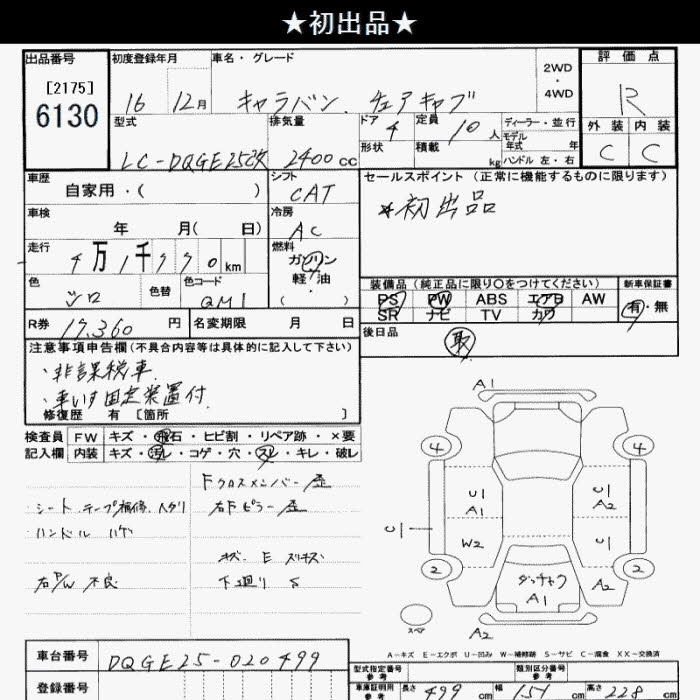 ★初出品★
出品番号
[2175]
6130
初度登録年月
16 12月
車名・グレード
キャラバン. チェアキャブ
2WD
・
4WD
評価点
R
外装 内装
C C
型式
LC-DQGE25改
排気量
2400cc
ドア 4
形状
定員 10人
積載 kg
ディーラー・並行
モデル年式 年
ハンドル 左・右
車歴
自家用・( )
シフト
CAT
セールスポイント(正常に機能するものに限ります)
*初出品
車検
年 月( 日)
冷房
AC
走行
4万1千770km
燃料
ガソリン
軽・油
( ・ )
色
シロ
色替
色コード
QM1
装備品(純正品に限り○をつけてください)
PS PW ABS エアB AW
SR ナビ TV カワ
新車保証書
有・無
R券 17,360円
名変期限 月 日
後日品
取
注意事項申告欄(不具合内容等は具体的に記入して下さい)
・非課税車
・車いす固定装置付
修復歴 有 [箇所 ]
検査員 FW キズ・飛石・ヒビ割・リペア跡・×要
記入欄 内装 キズ・汚レ・コゲ・穴・スレ・キレ・破レ
Fクロスメンバー歪
シート テープ補修 ヘタリ
右Fピラー歪
ハンドル ハゲ
キズ E スリキズ
右P/W 不良
下廻り S
A1
4 4
U1
A1
U1
A2
C
W2
U1
2 2
ダッチャク
A1
A2
スペア
A2
A-キズ E-エクボ U-凹み W-補修跡 S-サビ C-腐食 XX-交換済
車台番号
DQGE25-020499
登録番号
型式指定番号
参考
類別区分番号
参考
車庫証明用
参考
長さ 499
幅 151
高さ 228